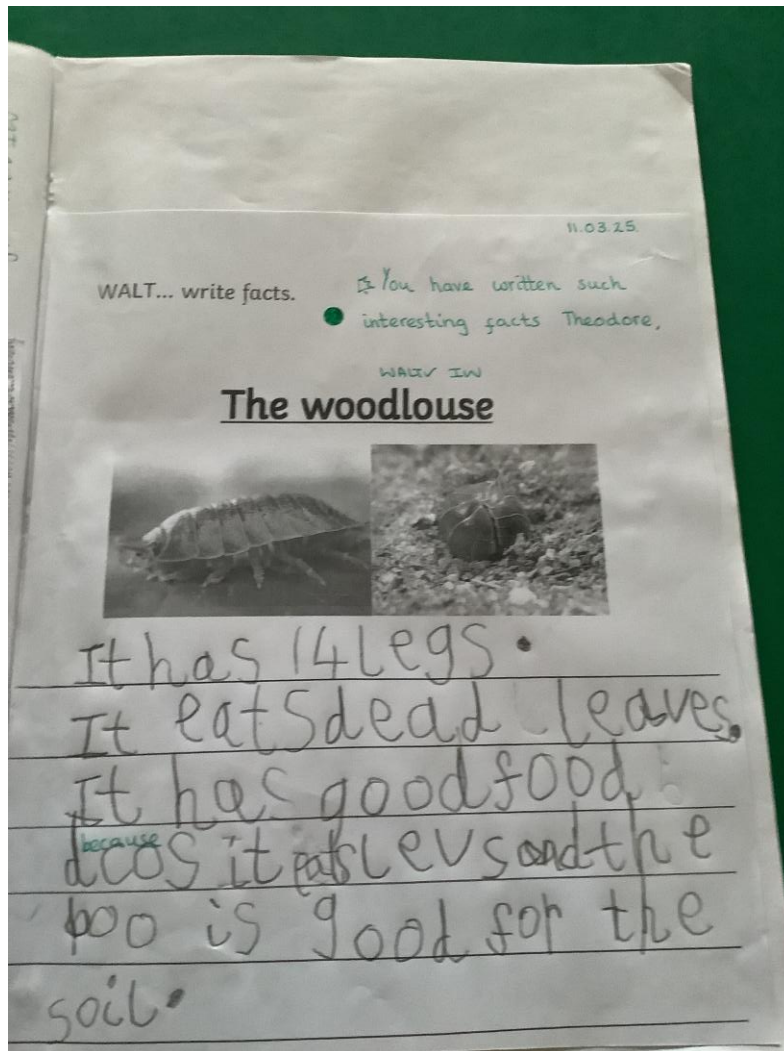 11.03.25.
WALT... write facts.
You have written such
interesting facts Theodore,
IW
The woodlouse
It has 14 legs.
It eats dead leaves.
It has good food
because
dcos it eats levs and the
poo is good for the
soil.